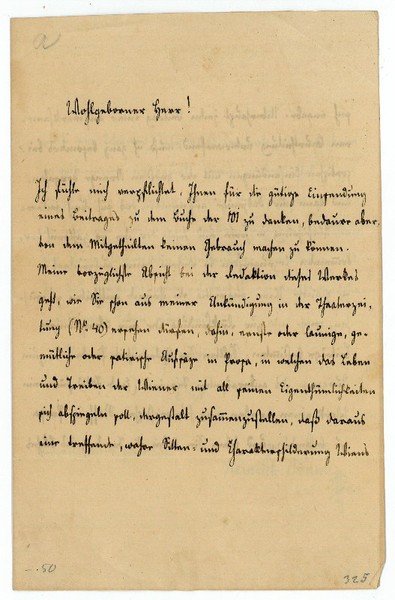 a
Wohlgeborner Herr!
Ich fühle mich verpflichtet, Ihnen für die gütige Einsendung
eines Beitrages zu dem Buche der 101 zu danken, bedaure aber
von dem Mitgetheilten keinen Gebrauch machen zu können.
Meine vorzüglichste Absicht bei der Redaktion dieses Werkes
geht, wie Sie schon aus meiner Ankündigung in der Theaterzei-
tung (No. 40) ersehen dürften, dahin, ernste oder launige, ge-
müthliche oder satirische Aufsäze in Prosa, in welchen das Leben
und Treiben der Wiener mit all seinen Eigenthümlichkeiten
sich abspiegeln soll, dergestalt zusammenzustellen, daß daraus
eine treffende, wahre Sitten- und Charakterschilderung Wiens
-.50
325